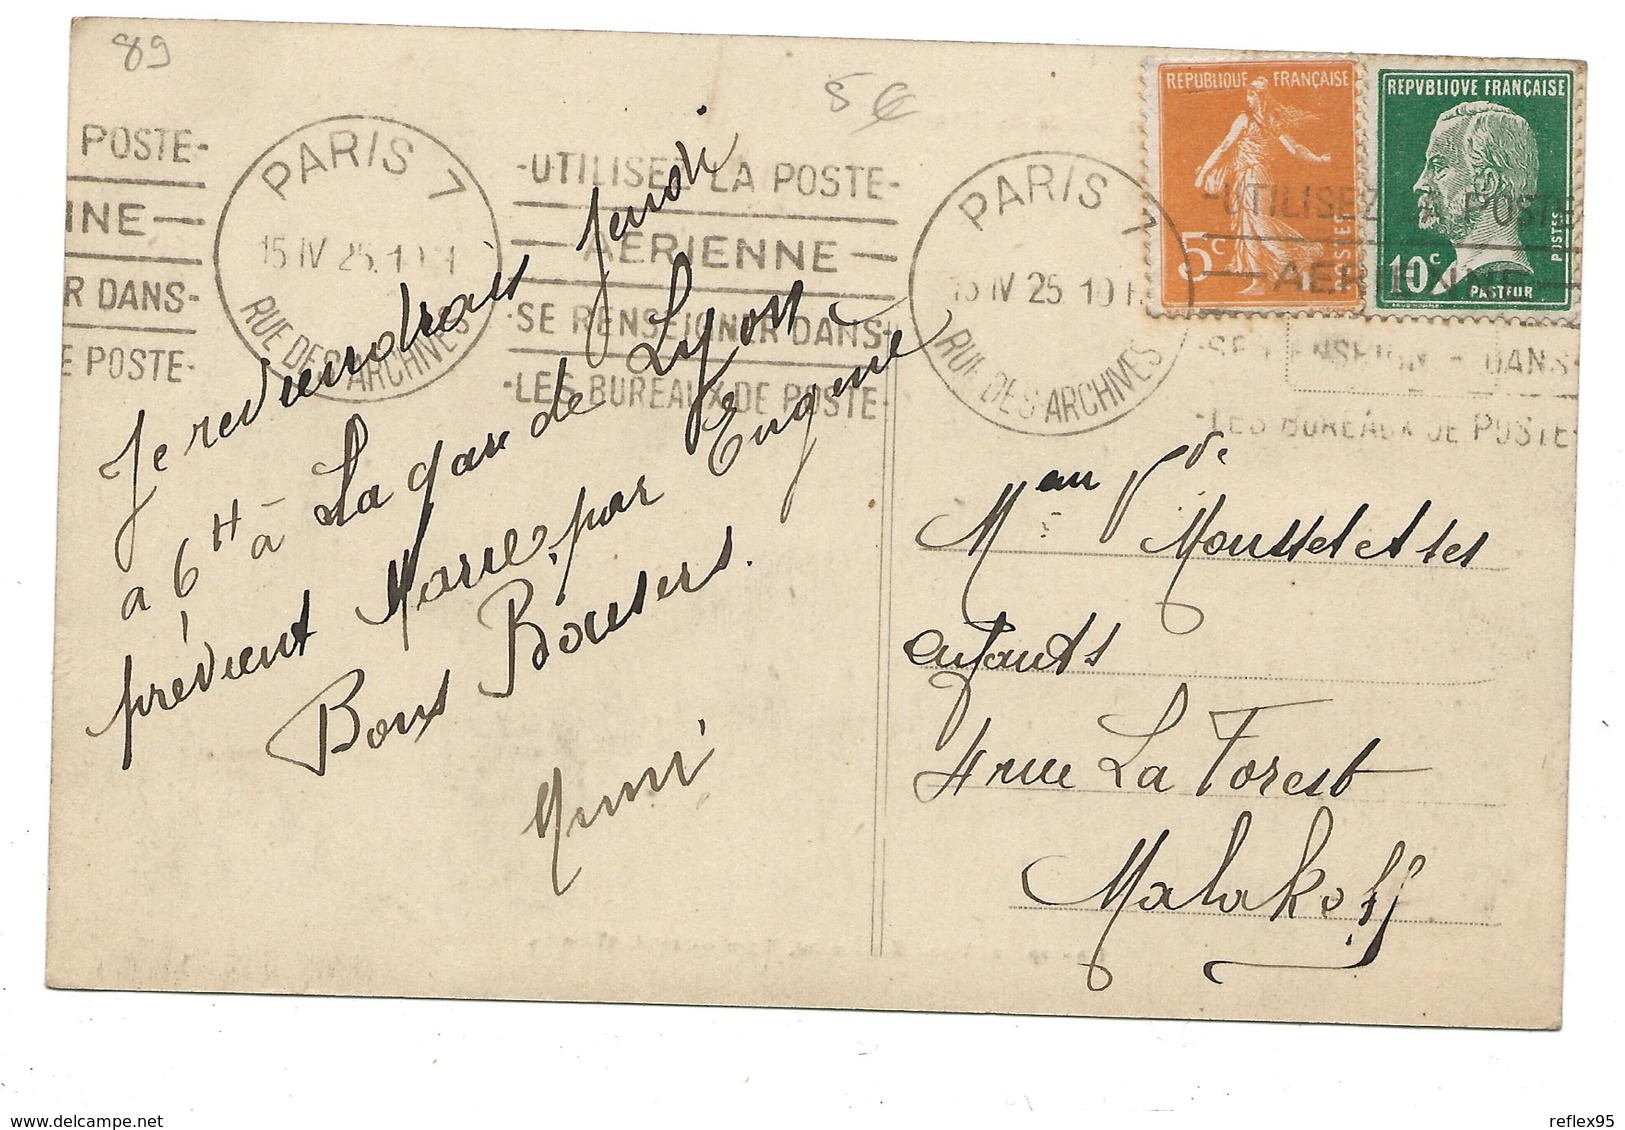 89
5€
POSTE-
INE-
R DANS-
E POSTE-
PARIS 7
15 IV 25. 10 H
RUE DES ARCHIVES
-UTILISEZ LA POSTE-
-AERIENNE-
-SE RENSEIGNER DANS-
-LES BUREAUX DE POSTE-
PARIS 7
15 IV 25. 10 H
RUE DES ARCHIVES
-UTILISEZ LA POSTE
-AERIENNE
-SE RENSEIGNER DANS-
-LES BUREAUX DE POSTE-
REPUBLIQUE FRANÇAISE
5c
POSTES
REPVBLIQVE FRANÇAISE
10c
POSTES
PASTEUR
Je reviendrais Jeudi
a 6H à La gare de Lyon
prévient Marie, par Eugène
Bons Baisers.
Mme Vve Mousset et ses
enfants
4 rue La Forest
Malakoff
delcampe.net
reflex95